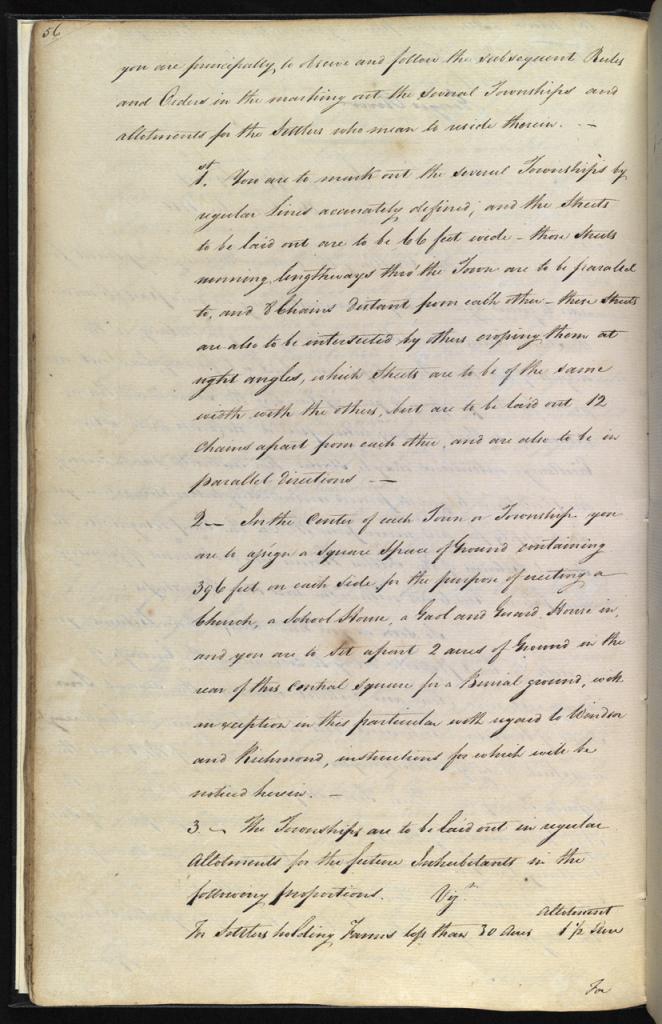 56
you are principally, to observe and follow the subsequent Rules
and Orders in the marking out the several Townships and
allotments for the Settlers who mean to reside therein. —
1st. You are to mark out the several Townships by
regular lines accurately defined; and the Streets
to be laid out are to be 66 feet wide – those Streets
running lengthways thro' the Town are to be parallel
to, and 8 Chains distant from each other – these Streets
are also to be intersected by others crossing them at
right angles, which Streets are to be of the same
width with the others, but are to be laid out 12
Chains apart from each other, and are also to be in
parallel directions —
2 — In the Center of each Town or Township you
are to assign a Square Space of Ground containing
396 feet on each side for the purpose of erecting a
Church, a School House, a Gaol and Guard House in,
and you are to set apart 2 acres of Ground in the
rear of this Central Square for a Burial ground, with
an exception in this particular with regard to Windsor
and Richmond, instructions for which will be
noticed herein. —
3 — The Townships are to be laid out in regular
Allotments for the future Inhabitants in the
following proportions. Vizt
Allotment
For Settlers holding Farms less than 30 Acres 1 1/2 Acre
For